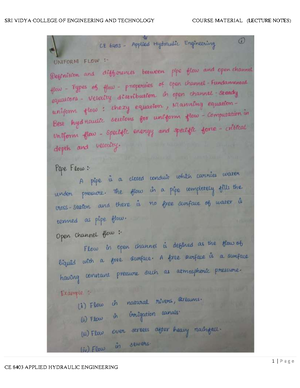 SRI VIDYA COLLEGE OF ENGINEERING AND TECHNOLOGY COURSE MATERIAL (LECTURE NOTES)
CE 6403 - Applied Hydraulic Engineering
UNIFORM FLOW :-
Definition and differences between pipe flow and open channel
flow - Types of flow - properties of open channel - Fundamental
equations - Velocity distribution in open channel steady
uniform flow : Chezy equation, Manning equation -
Best hydraulic sections for uniform flow - Computation in
Uniform flow - Specific energy and specific force - critical
depth and velocity.
Pipe Flow :-
A pipe is a closed conduit which carries water
under pressure. The flow in a pipe completely fills the
cross-section and there is no free surface of water is
termed as pipe flow.
Open channel flow :-
Flow in open channel is defined as the flow of
liquid with a free surface. A free surface is a surface
having constant pressure such as atmospheric pressure.
Example :-
(i) Flow in natural rivers, streams.
(ii) Flow in irrigation
(iii) Flow over
(iv) Flow in sewers
1 | P a g e
CE 6403 APPLIED HYDRAULIC ENGINEERING